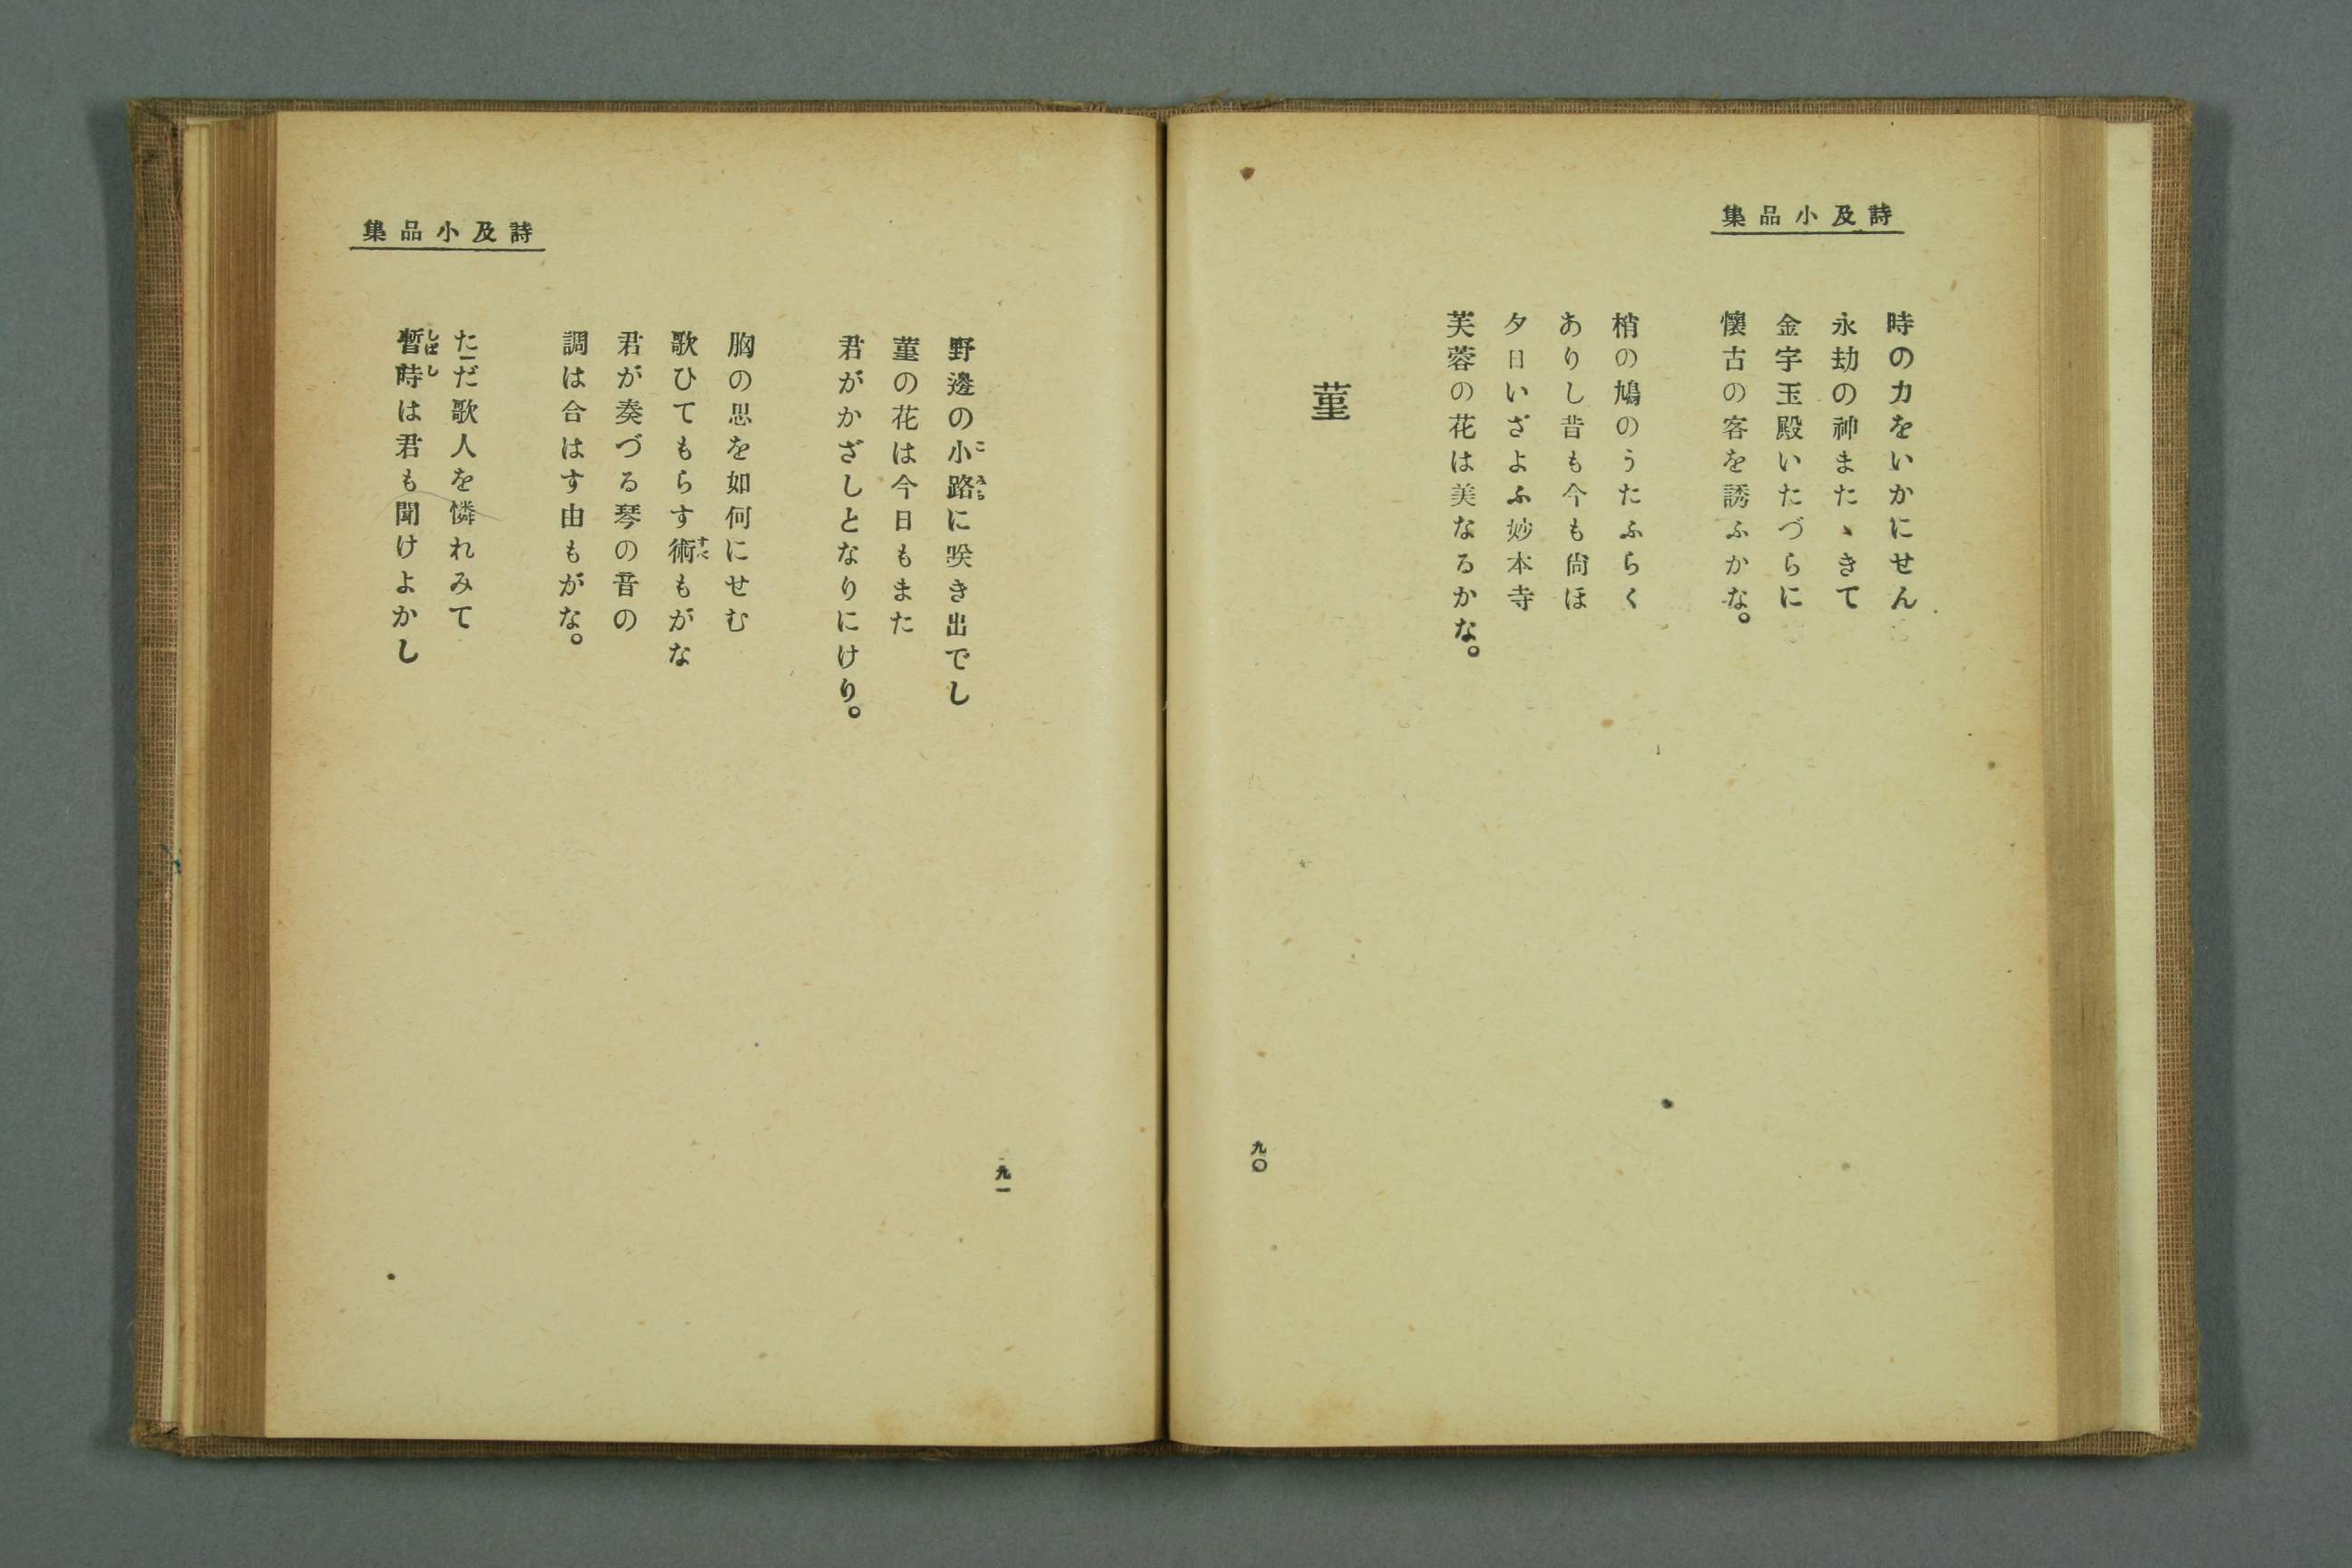 詩及小品集
時の力をいかにせん
永劫の神またゝきて
金宇玉殿いたづらに
懷古の客を誘ふかな。
梢の鳩のうたふらく
ありし昔も今も尙ほ
夕日いざよふ妙本寺
芙蓉の花は美なるかな。
菫
九〇
詩及小品集
野邊の小路に咲き出でし
こみち
菫の花は今日もまた
君がかざしとなりにけり。
胸の思を如何にせむ
歌ひてもらす術もがな
すべ
君が奏づる琴の音の
調は合はす由もがな。
ただ歌人を憐れみて
暫時は君も聞けよかし
しばし
九一